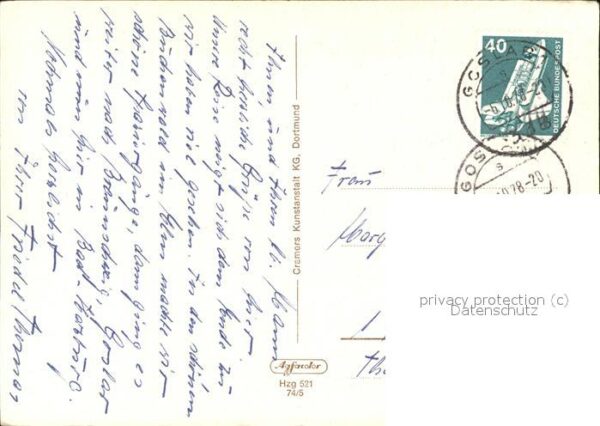 Ihnen und Ihrem lb. Mann
recht herzliche Grüße von hier.
Unsere Reise neigt sich dem Ende zu
wir haben viel gesehen. In den schönen
Buchenwald im Elm machten wir
schöne dann ging es
weiter nach Braunschweig, Goslar
und nun hier in Bad-Harzburg.
Nochmals herzlichst
von Ihrer
Cramers Kunstanstalt KG, Dortmund
Hzg 521
74/5
40
DEUTSCHE BUNDESPOST
GOSLAR
78-20
Frau
1
privacy protection (c)
Datenschutz